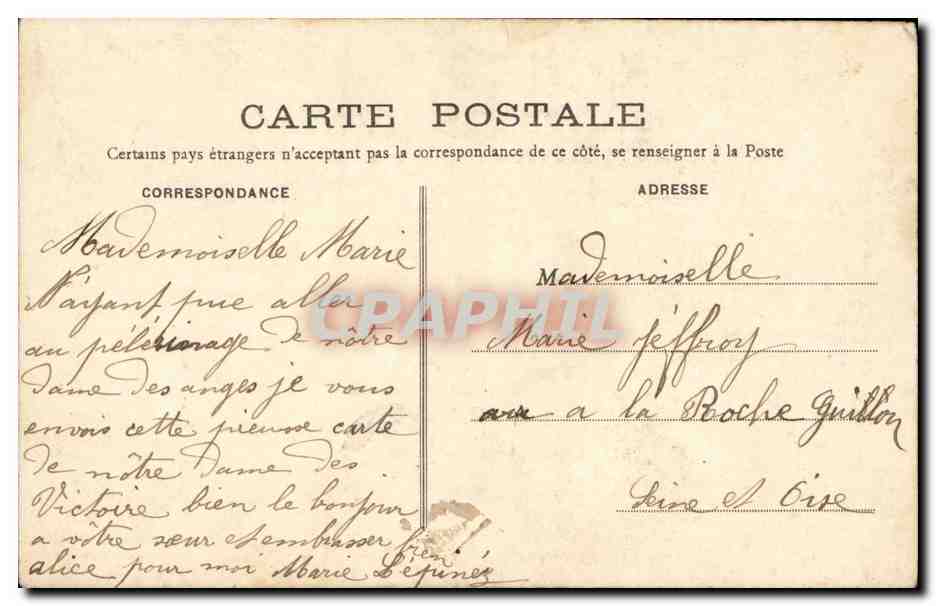 CARTE POSTALE
Certains pays étrangers n'acceptant pas la correspondance de ce côté, se renseigner à la Poste
CORRESPONDANCE
Mademoiselle Marie
N'ayant pue aller
au pélérinage de nôtre
dame des anges je vous
envois cette pieusse carte
de nôtre dame des
Victoire bien le bonjour
a vôtre sœur et embrasser bien
alice pour moi Marie Lépinéz
ADRESSE
Mademoiselle
Marie Jéffroy
a la Roche Guillon
Seine et Oise
CPAPHIL